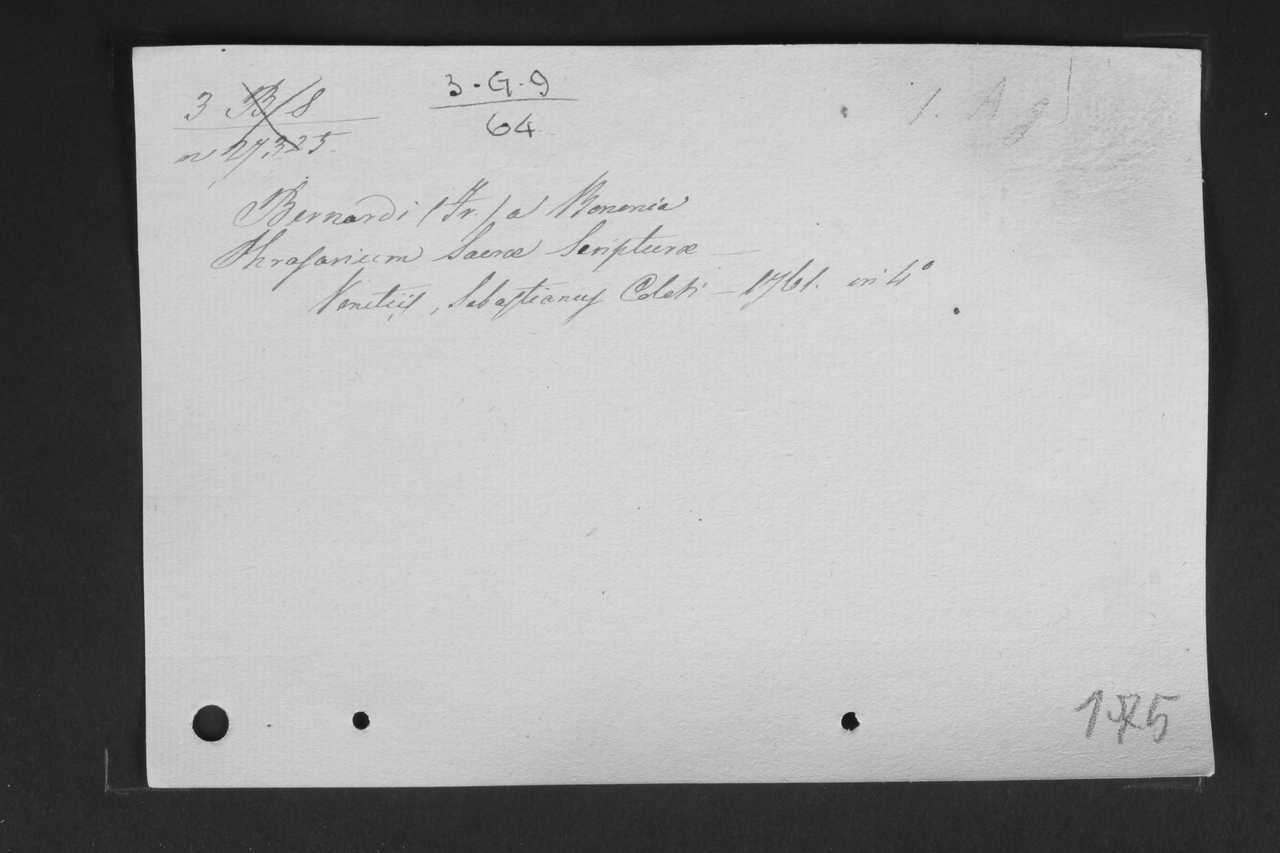 3 B/8
n 27,325.
3-G-9
64
Bernardi (Fr.) a Bononia
Thrasarium Sacræ Scripturæ —
Venetiis, Sebastianus Coleti — 1761. in 4°